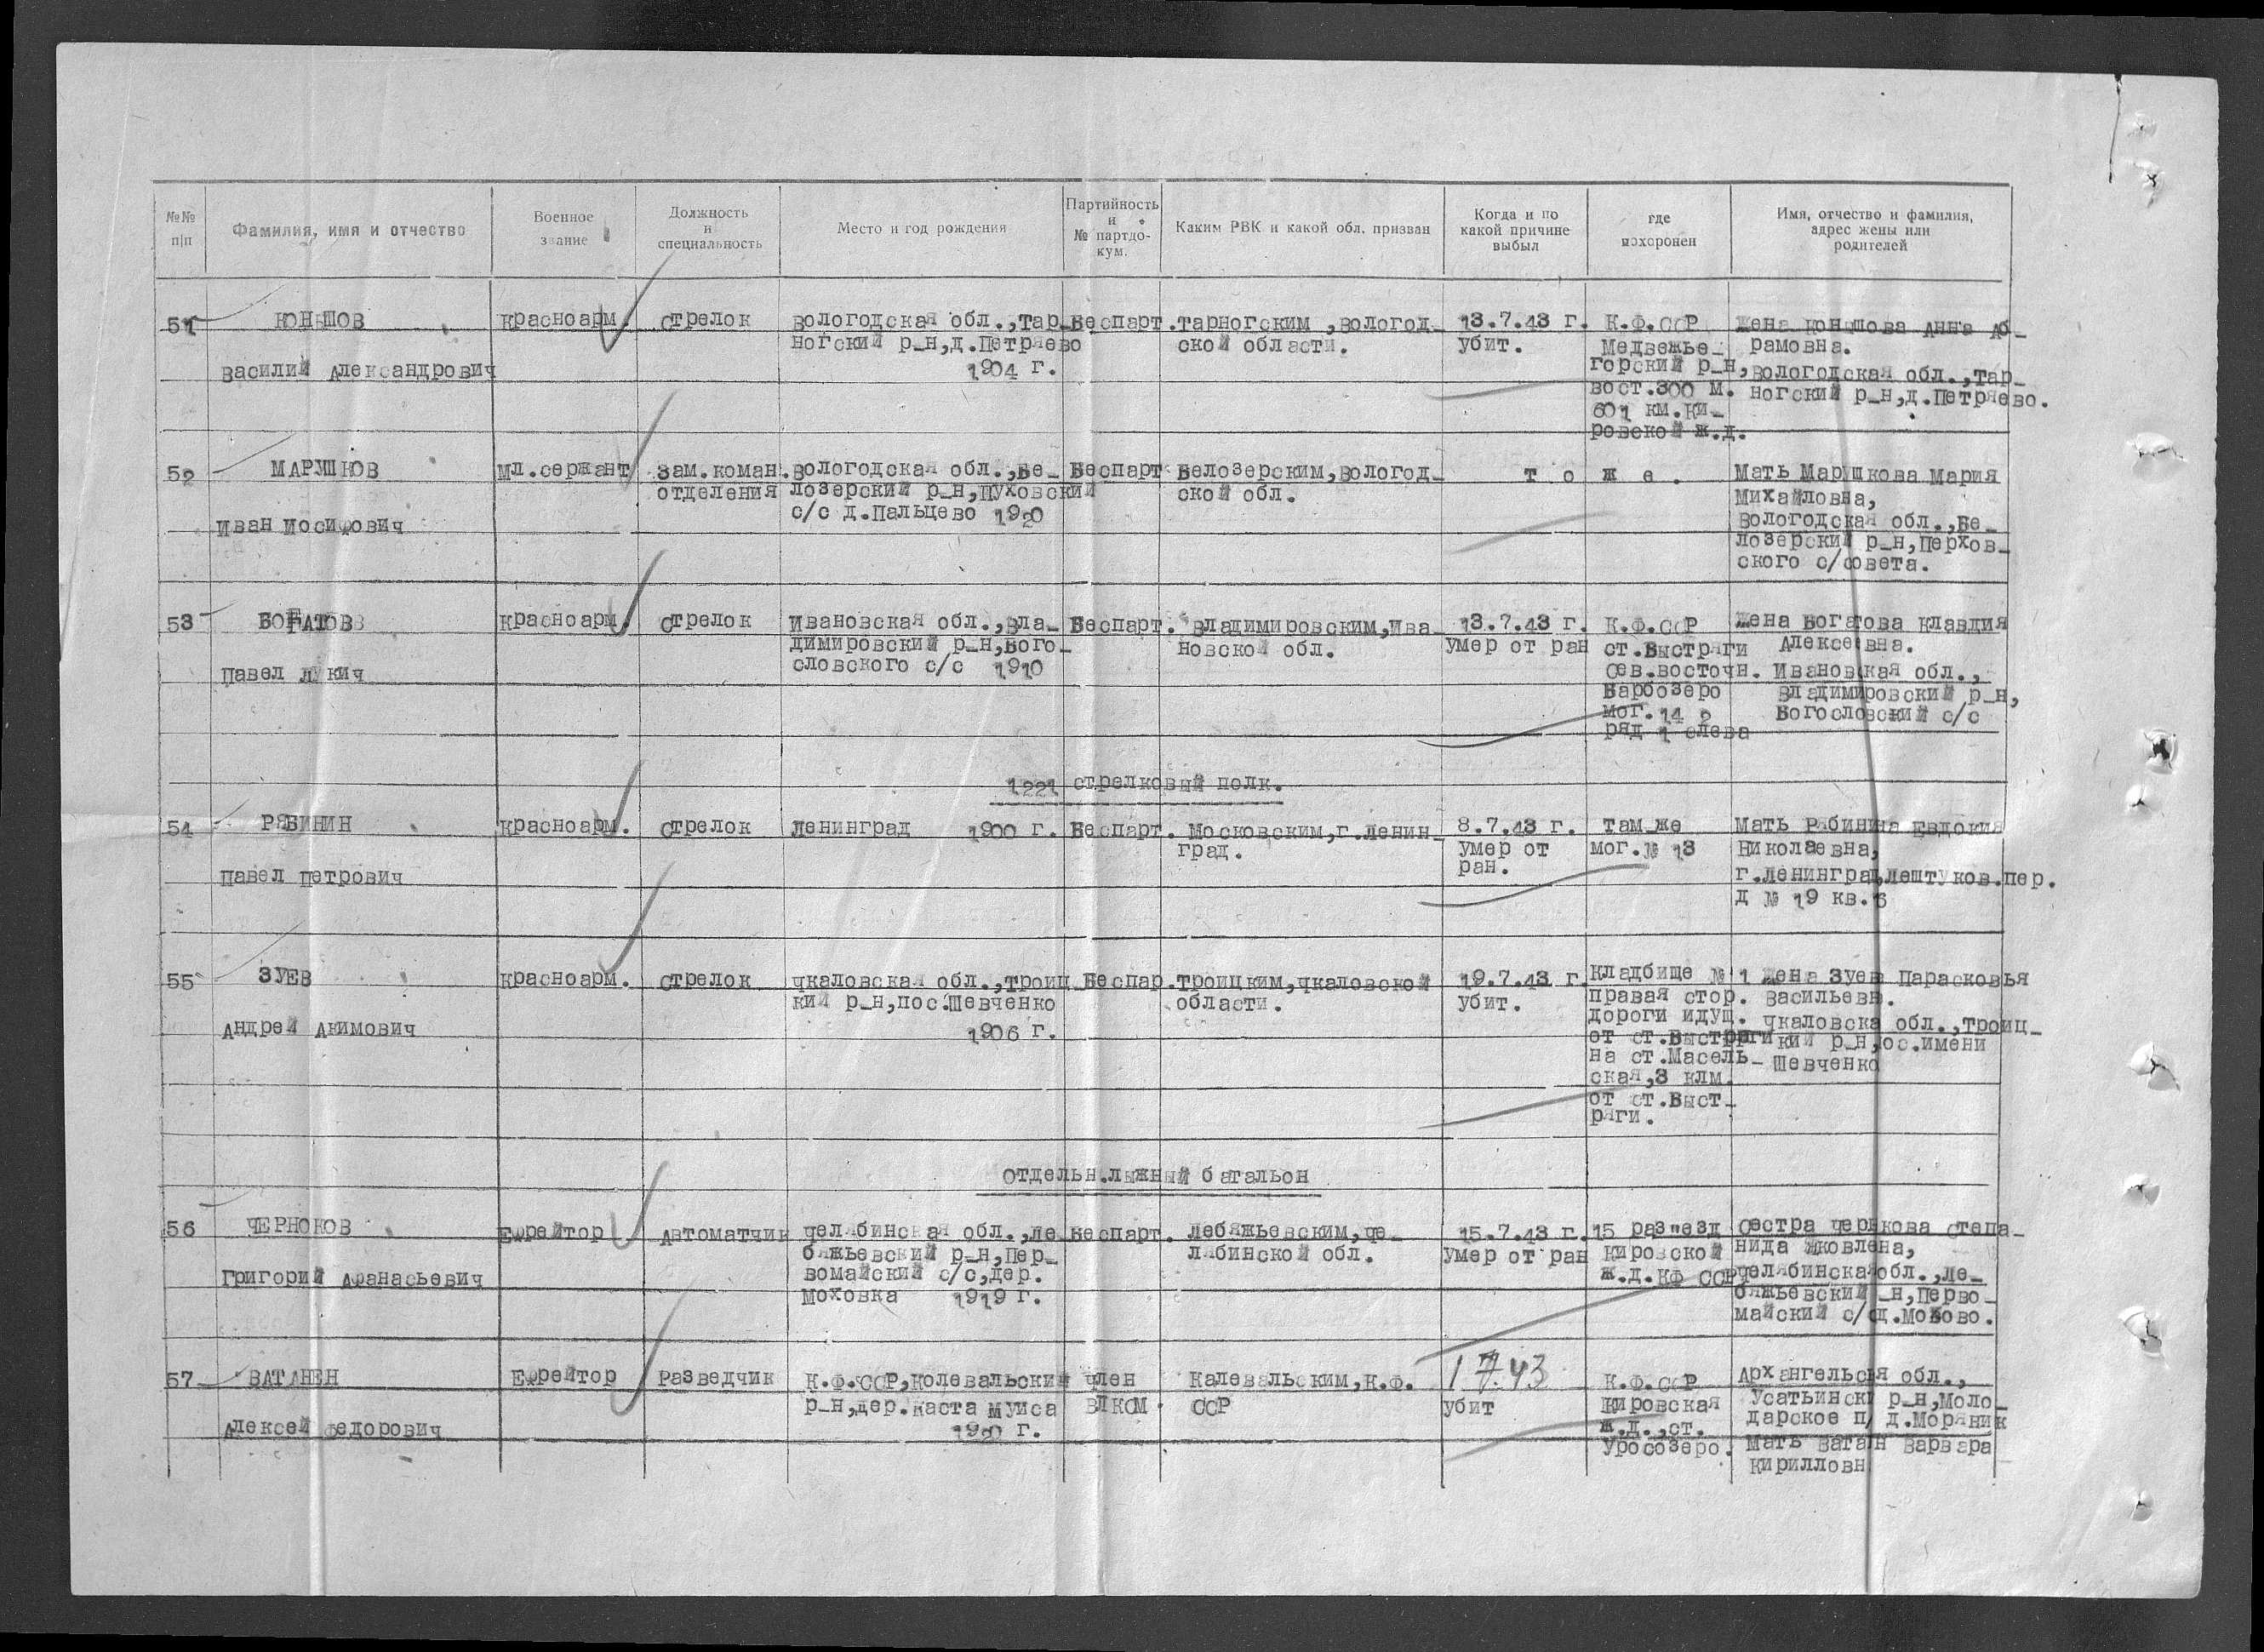 №№ п|п
Фамилия, имя и отчество
Военное звание
Должность и специальность
Место и год рождения
Партийность и № партдо-кум.
Каким РВК и какой обл. призван
Когда и по какой причине выбыл
где похоронен
Имя, отчество и фамилия, адрес жены или родителей
51
КОНЬШОВ
Василий Александрович
Красноарм.
Стрелок
Вологодская обл., Тар-
ногский р-н, д.Петряево
1904 г.
Беспарт.
Тарногским, Вологод-
ской области.
13.7.43 г.
убит.
К.Ф.ССР
Медвежье-
горский р-н,
вост.300 м.
601 км.Ки-
ровской ж.д.
Жена Коньшова Анна Аб-
рамовна.
Вологодская обл., Тар-
ногский р-н,д.Петряево.
52
МАРУШКОВ
Иван Иосифович
Мл.сержант
Зам.коман.
отделения
Вологодская обл., Бе-
лозерский р-н,Пуховский
с/с д.Пальцево 1920
Беспарт
Белозерским, Вологод-
ской обл.
т о ж е .
Мать Марушкова Мария
Михайловна,
Вологодская обл., Бе-
лозерский р-н, Перхов-
ского с/совета.
53
БОГАТОВ
Павел Лукич
Красноарм.
Стрелок
Ивановская обл., Вла-
димировский р-н, Бого-
словского с/с 1910
Беспарт.
Владимировским, Ива-
новской обл.
13.7.43 г.
умер от ран
К.Ф.ССР
ст.Быстряги
Сев.восточн.
Варбозеро
мог.14
ряд 1 слева
Жена Богатова Клавдия
Алексеевна.
Ивановская обл.,
Владимировский р-н,
Богословский с/с
1221 стрелковый полк.
54
РЯБИНИН
Павел Петрович
Красноарм.
Стрелок
Ленинград 1900 г.
Беспарт.
Московским, г.Ленин-
град.
8.7.43 г.
умер от
ран.
Там-же
мог.№ 13
Мать Рябинина Евдокия
Николаевна,
г.Ленинград, Лештуков.пер.
д № 19 кв.6
55
ЗУЕВ
Андрей Акимович
Красноарм.
Стрелок
Чкаловская обл., Троиц
кий р-н, пос.Шевченко
1906 г.
Беспар.
Троицким, Чкаловской
области.
19.7.43 г.
убит.
Кладбище № 1
правая стор.
дороги идущ.
от ст.Быстряги
на ст.Масель-
ская, 3 клм.
от ст.Быст-
ряги.
Жена Зуева Парасковья
Васильевн.
Чкаловска обл., Троиц-
кий р-н, ос.имени
Шевченко
Отдельн.лыжный батальон
56
ЧЕРНОКОВ
Григорий Афанасьевич
Ефрейтор
Автоматчик
Челябинская обл., Ле
бяжьевский р-н, Пер-
вомайский с/с, дер.
Моховка 1919 г.
Беспарт.
Лебяжьевским, Че-
лябинской обл.
15.7.43 г.
умер от ран
15 разъезд
Кировской
ж.д.КФ ССР
Сестра Чернкова Степа-
нида Яковлена,
Челябинска обл., Ле-
бяжьевский -н, Перво-
майский с/с д.Мохово.
57
ВАТАНЕН
Алексей Федорович
Ефрейтор
Разведчик
К.Ф.ССР, Колевальский
р-н, дер.Каста Муиса
1920 г.
член
ВЛКСМ
Калевальским, К.Ф.
ССР
1 7.43
убит
К.Ф.ССР
Кировская
ж.д., ст.
Уросозеро.
Архангельскя обл.,
Усатьински р-н, Моло-
дарское п/ д.Моряник
Мать Ватан Варвара
Кирилловн